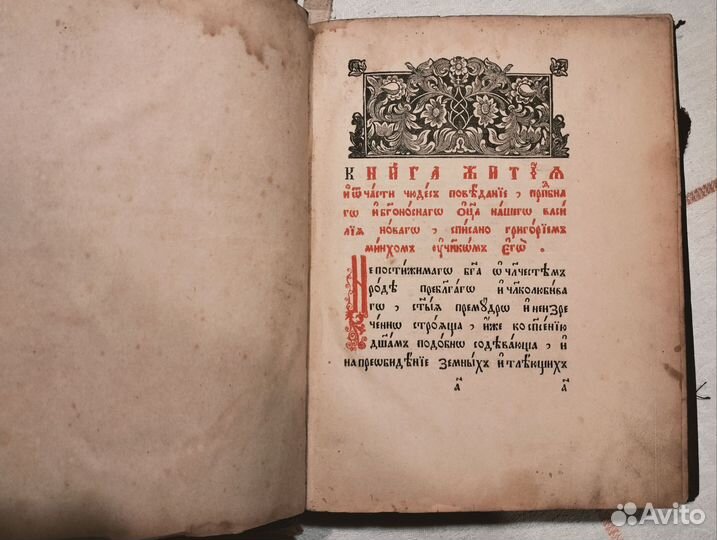 КНИ́ГА ЖИТІѦ̀
и҆ ѿ ча́сти чюде́съ повѣ́данїе, прпⷣбна
гѡ и҆ бг҃оно́снагѡ ѻ҆ц҃а̀ на́шегѡ васи́
лїѧ но́вагѡ, спи́сано григо́рїемъ
мни́хомъ ᲂу҆чн҃ко́мъ є҆гѡ̀.
Непостижи́магѡ бг҃а ѡ҆ чл҃честѣмъ
ро́дѣ пребл҃га́гѡ и҆ чл҃колюби́ва
гѡ, ст҃ы́ѧ премꙋ́дрѡ и҆ неизре
че́ннѡ строѧ́ща, и҆́же ко сп҃се́нїю
дш҃а́мъ подо́бнѡ содѣва́юща, и҆
на преѡби́дѣнїе земны́хъ и҆ тлѣ́ющихъ
а҃ а҃
Avito